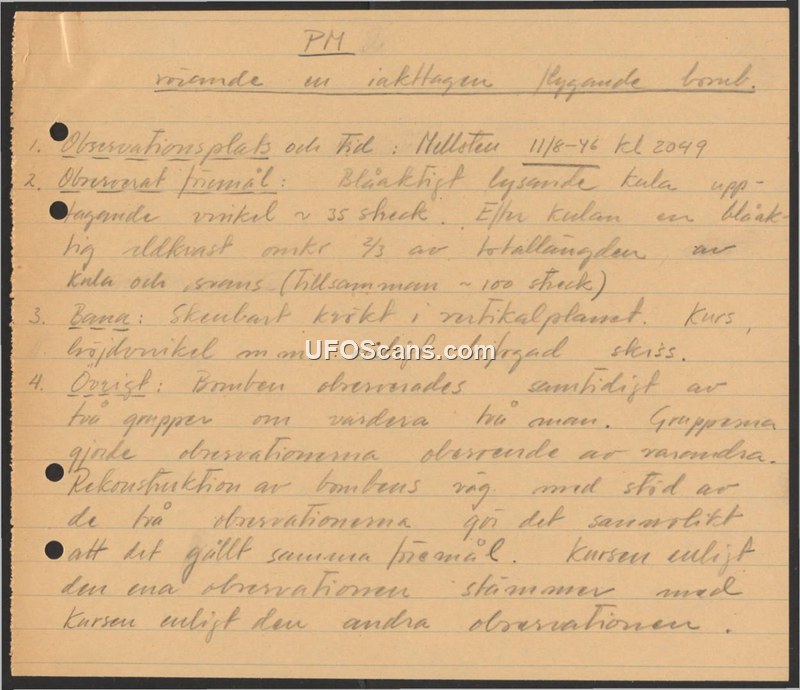 PM
rörande en iakttagen flygande bomb.
1. Observationsplats och tid: Mellsten 11/8-46 kl 2049
2. Observerat föremål: Blåaktigt lysande kula upp-
tagande vinkel ~ 35 streck. Efter kulan en blåak-
tig eldkvast omkr 2/3 av totallängden av
kula och svans (tillsamman ~ 100 streck)
3. Bana: Skenbart krökt i vertikalplanet. Kurs,
höjdvinkel m m skiss.
UFOScans.com
4. Övrigt: Bomben observerades samtidigt av
två grupper om vardera två man. Grupperna
gjorde observationerna oberoende av varandra.
Rekonstruktion av bombens väg med stöd av
de två observationerna gör det sannolikt
att det gällt samma föremål. Kursen enligt
den ena observationen stämmer med
kursen enligt den andra observationen.